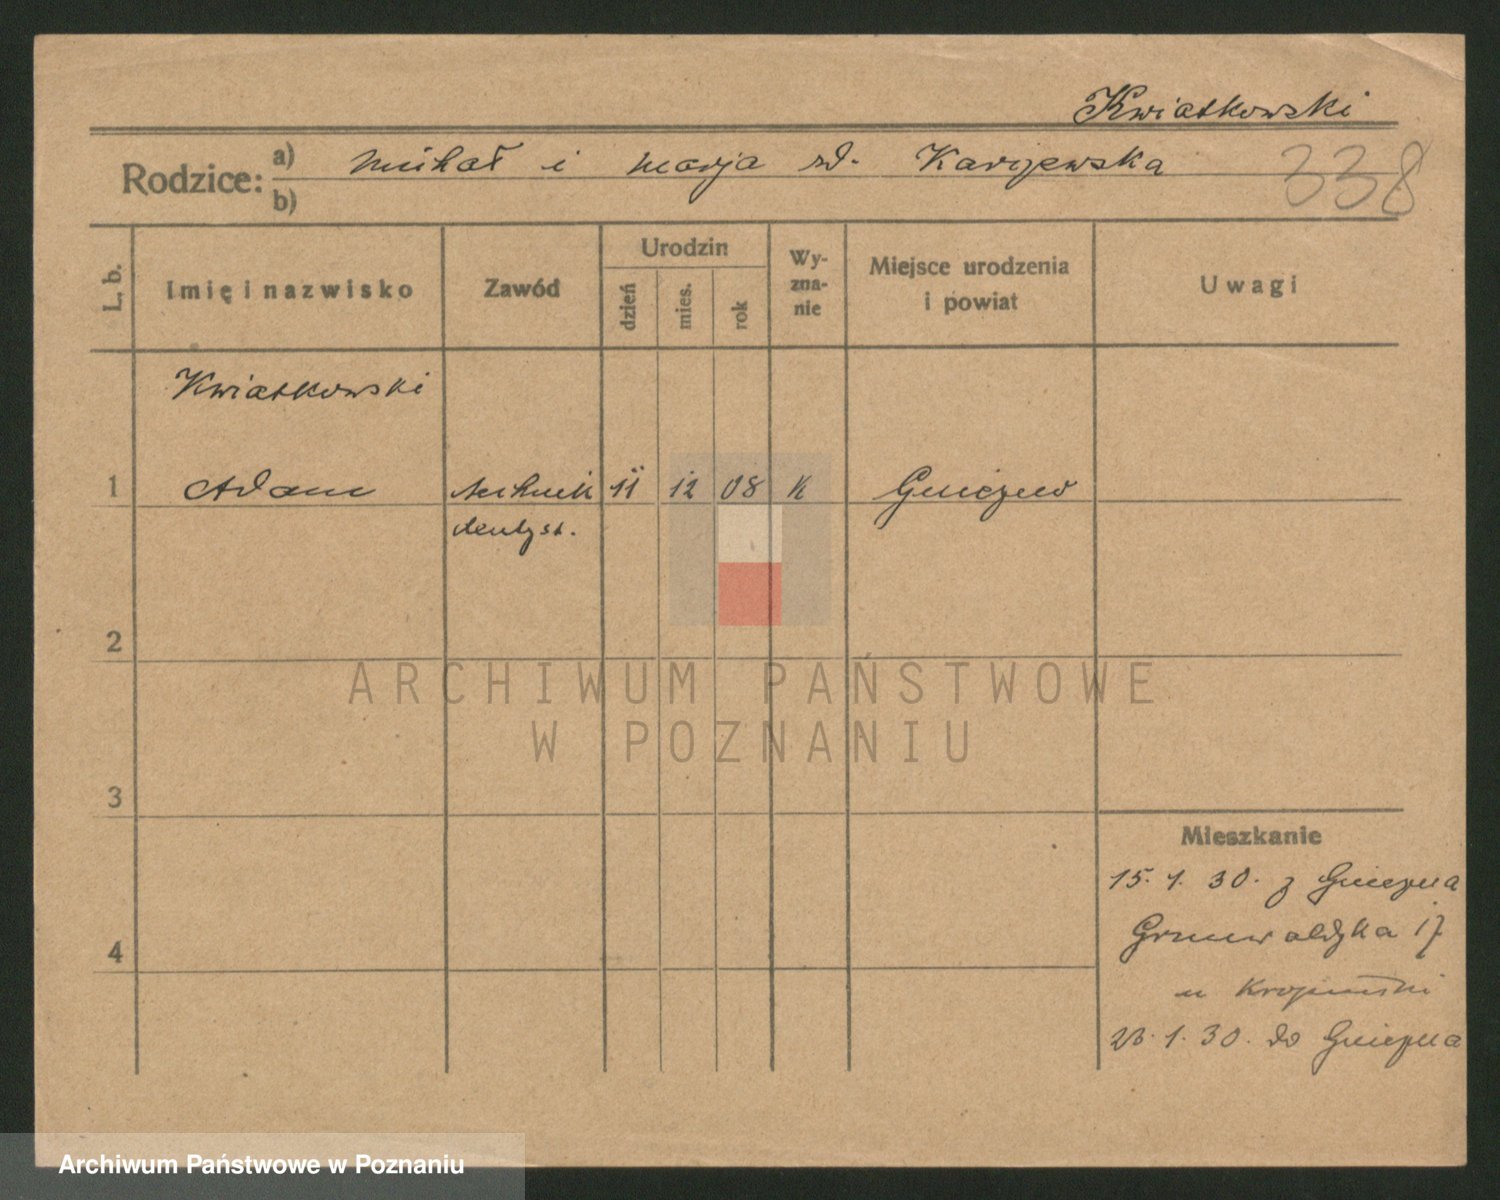 Kwiatkowski
Rodzice: a) Michał i Marja zd. Karczewska
b)
338
L. b.
Imię i nazwisko
Zawód
Urodzin
dzień
mies.
rok
Wy-
zna-
nie
Miejsce urodzenia
i powiat
Uwagi
Kwiatkowski
1 Adam technik 11 12 08 K Gniezno
dentyst.
2
ARCHIWUM PAŃSTWOWE
W POZNANIU
3
Mieszkanie
15. 1. 30. z Gniezna
Grunwaldzka 17
4
u
23. 1. 30. do Gniezna
Archiwum Państwowe w Poznaniu